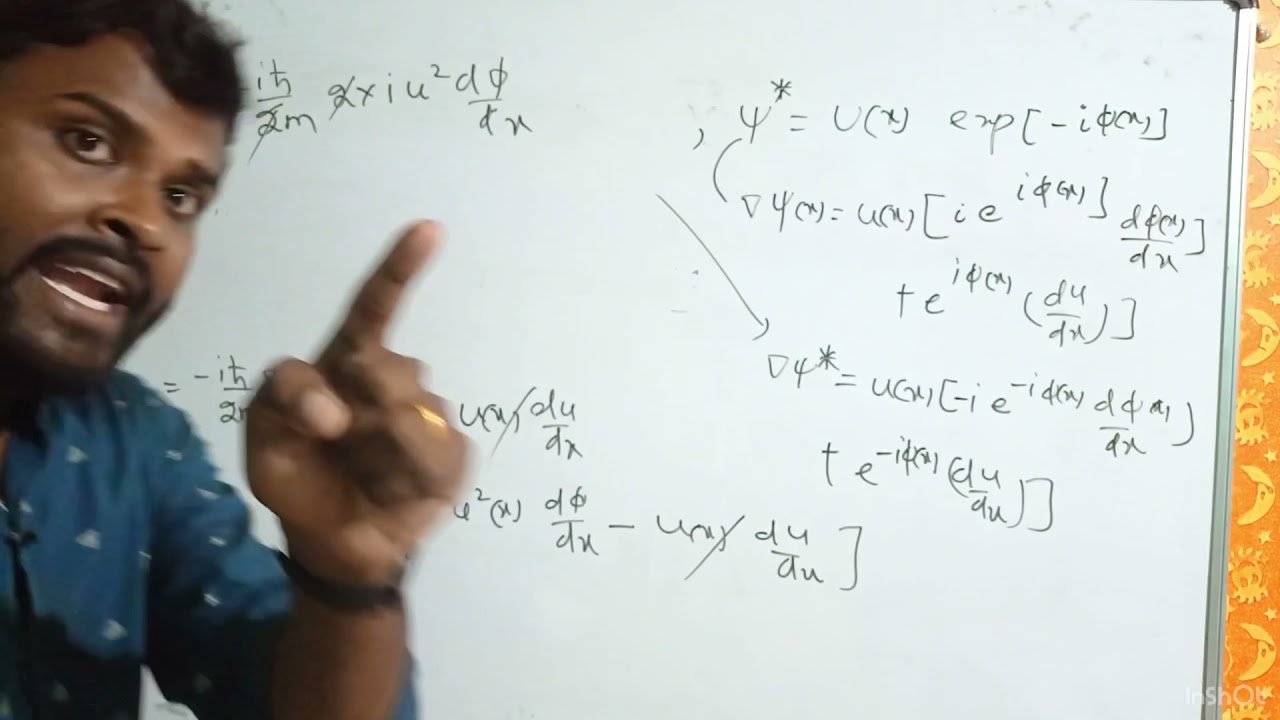 iħ/2m 2×i u² dϕ/dx
, ψ* = U(x) exp[-iϕ(x)]
∇ψ(x) = u(x)[i e^{iϕ(x)}] dϕ(x)/dx]
+ e^{iϕ(x)} (du/dx)]
∇ψ* = u(x)[-i e^{-iϕ(x)} dϕ(x)/dx)
+ e^{-iϕ(x)} (du/dx)]
= -iħ/2m
u(x) du/dx
u²(x) dϕ/dx - u(x) du/dx ]
InShOt